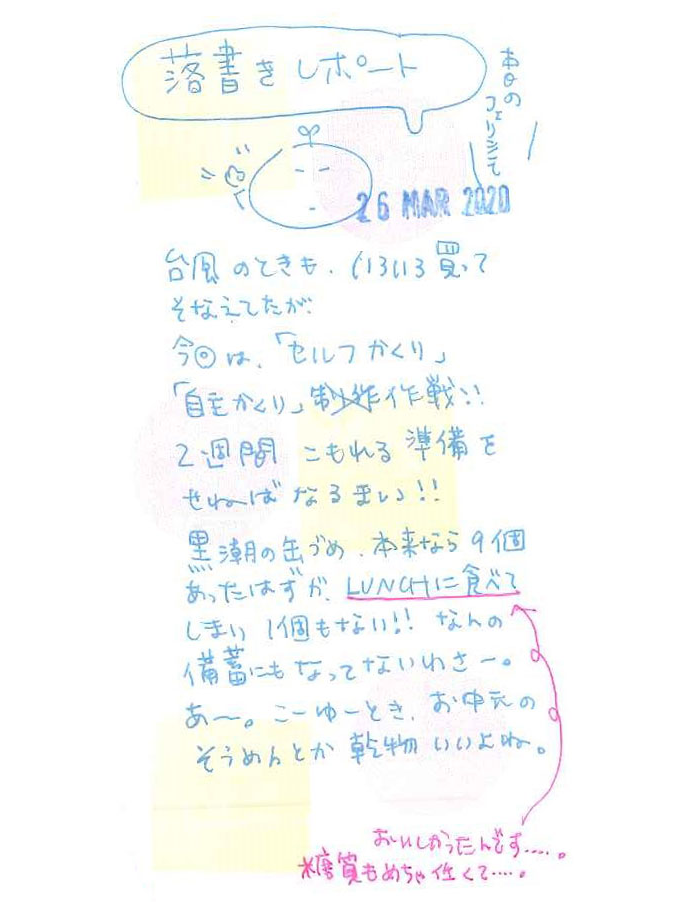 落書きレポート
本日の
フェリシモ
26 MAR 2020
台風のときも、いろいろ買って
そなえてたが、
今回は、「セルフかくり」
「自主かくり」作戦!!
2週間 こもれる 準備を
せねば なるまい!!
黒潮の缶づめ、本来なら9個
あったはずが、LUNCHに食べて
しまい 1個もない!! なんの
備蓄にも なってないわさー。
あ〜。こーゆーとき、お中元の
そうめんとか 乾物 いいよね。
おいしかったんです....。
糖質もめちゃ低くて....。